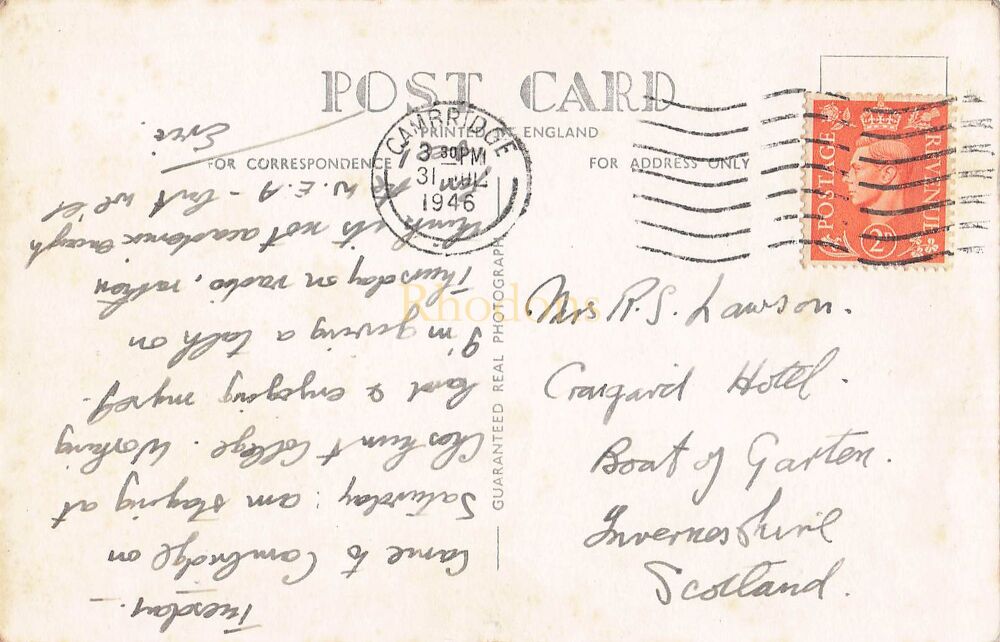 POST CARD
PRINTED ENGLAND
FOR CORRESPONDENCE
FOR ADDRESS ONLY
CAMBRIDGE
3 30PM
31 JUL
1946
POSTAGE
REVENUE
2D
GUARANTEED REAL PHOTOGRAPH
Rhodons
Mr R.S. Lawson.
Craigard Hotel.
Boat of Garten.
Invernesshire
Scotland.
Tuesday.
Came to Cambridge on
Saturday: am staying at
Cheshunt College. Working
hard & enjoying myself.
I'm giving a talk on
Thursday on radio, rather
think its not academic enough
for the W.E.A - but we'll
Eric.